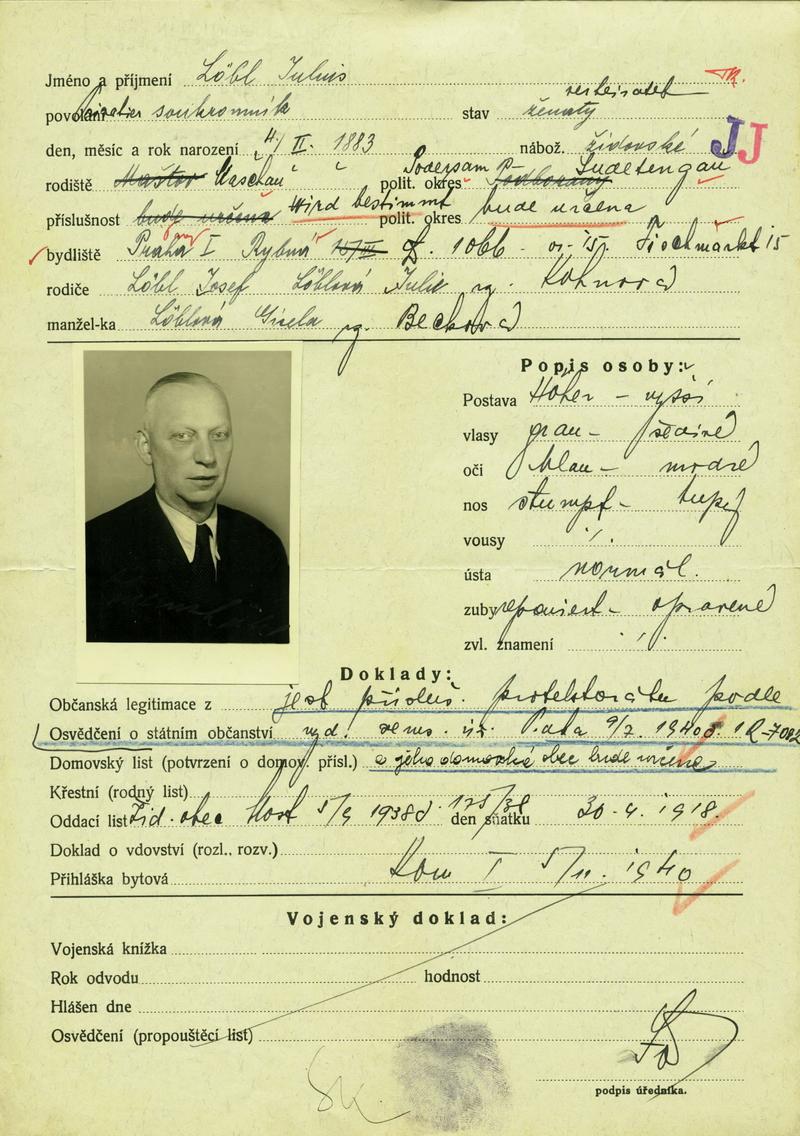 Jméno a příjmení Löbl Julius
verheiratet
povolání Privatier soukromník stav ženatý
den, měsíc a rok narození 4/ II. 1883 nábož. židovské JJ
rodiště Maštov Maschau Podersam polit. okres Podbořany Sudetengau
příslušnost bude určena Wird bestimmt polit. okres bude určena
bydliště Praha I Rybná čp. 1066 or. 15 Fischmarkt 15
rodiče Löbl Josef Löblová Julie rz. Kohnová
manžel-ka Löblová Gisela rz. Becková
Popis osoby:
Postava Höher – vyšší
vlasy grau – šedivé
oči blau – modré
nos stumpf – tupý
vousy ./.
ústa normál.
zuby repariert – opravené
zvl. znamení ./.
Doklady:
Občanská legitimace z jest přísluš. protektorátu podle
Osvědčení o státním občanství vyd. zems. úř. Praha 9/7. 1940
Domovský list (potvrzení o domov. přísl.) a jeho domovská obec bude určena
Křestní (rodný list)
Oddací list Žid. obec Most 5/9 1938 den sňatku 30. 4. 1918.
Doklad o vdovství (rozl., rozv.)
Přihláška bytová Kom I 5/11. 1940
Vojenský doklad:
Vojenská knížka
Rok odvodu hodnost
Hlášen dne
Osvědčení (propouštěcí list)
podpis úředníka.